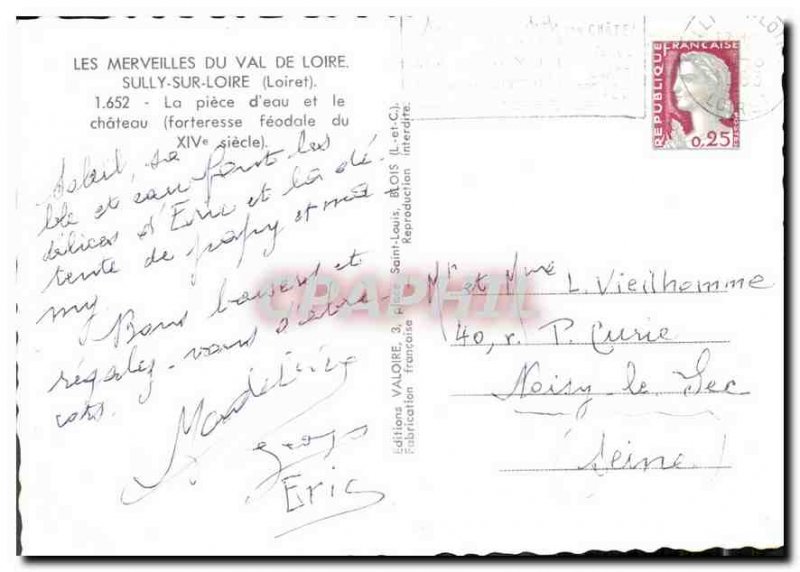 LES MERVEILLES DU VAL DE LOIRE.
SULLY-SUR-LOIRE (Loiret).
1.652 - La pièce d'eau et le
château (forteresse féodale du
XIVe siècle).
Soleil, sa
ble et eau font les
délices d'Eric et la dé-
tente de papy et ma-
my.
Bons baisers et
régalez-vous
Madeleine
Eric
Editions VALOIRE, 3, place Saint-Louis, BLOIS (L.-et-C.).
Fabrication française Reproduction interdite.
CHÂTE
REPUBLIQUE FRANÇAISE
0,25
POSTES
Mr et Mme L. Vieilhomme
40, r. P. Curie
Noisy le Sec
(Seine)
CPAPHIL